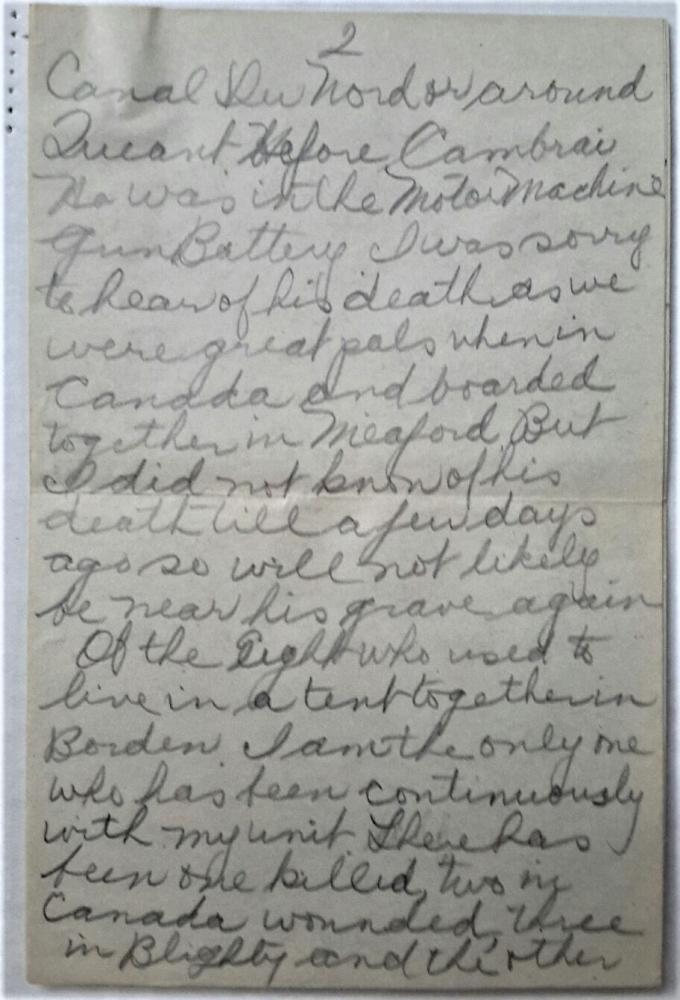 2
Canal Du Nord or around
Queant Before Cambrai
He was in the Motor Machine
Gun Battery I was sorry
to hear of his death as we
were great pals when in
Canada and boarded
together in Meaford But
I did not know of his
death till a few days
ago so will not likely
be near his grave again
Of the Eight who used to
live in a tent together in
Borden I am the only one
who has been continuously
with my unit There has
been one killed, two in
Canada wounded, three
in Blighty and the other